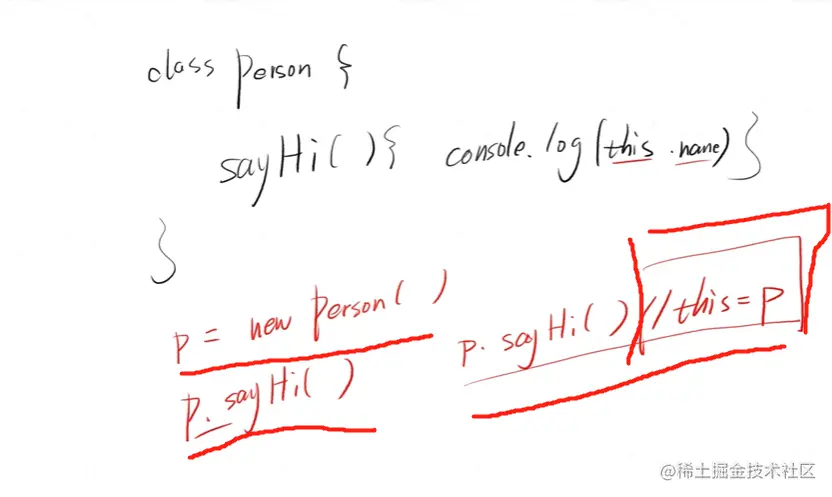 class person {
sayHi(){ console.log(this.name)}
}
p = new person()
p.sayHi() //this=p
p.sayHi()
@稀土掘金技术社区